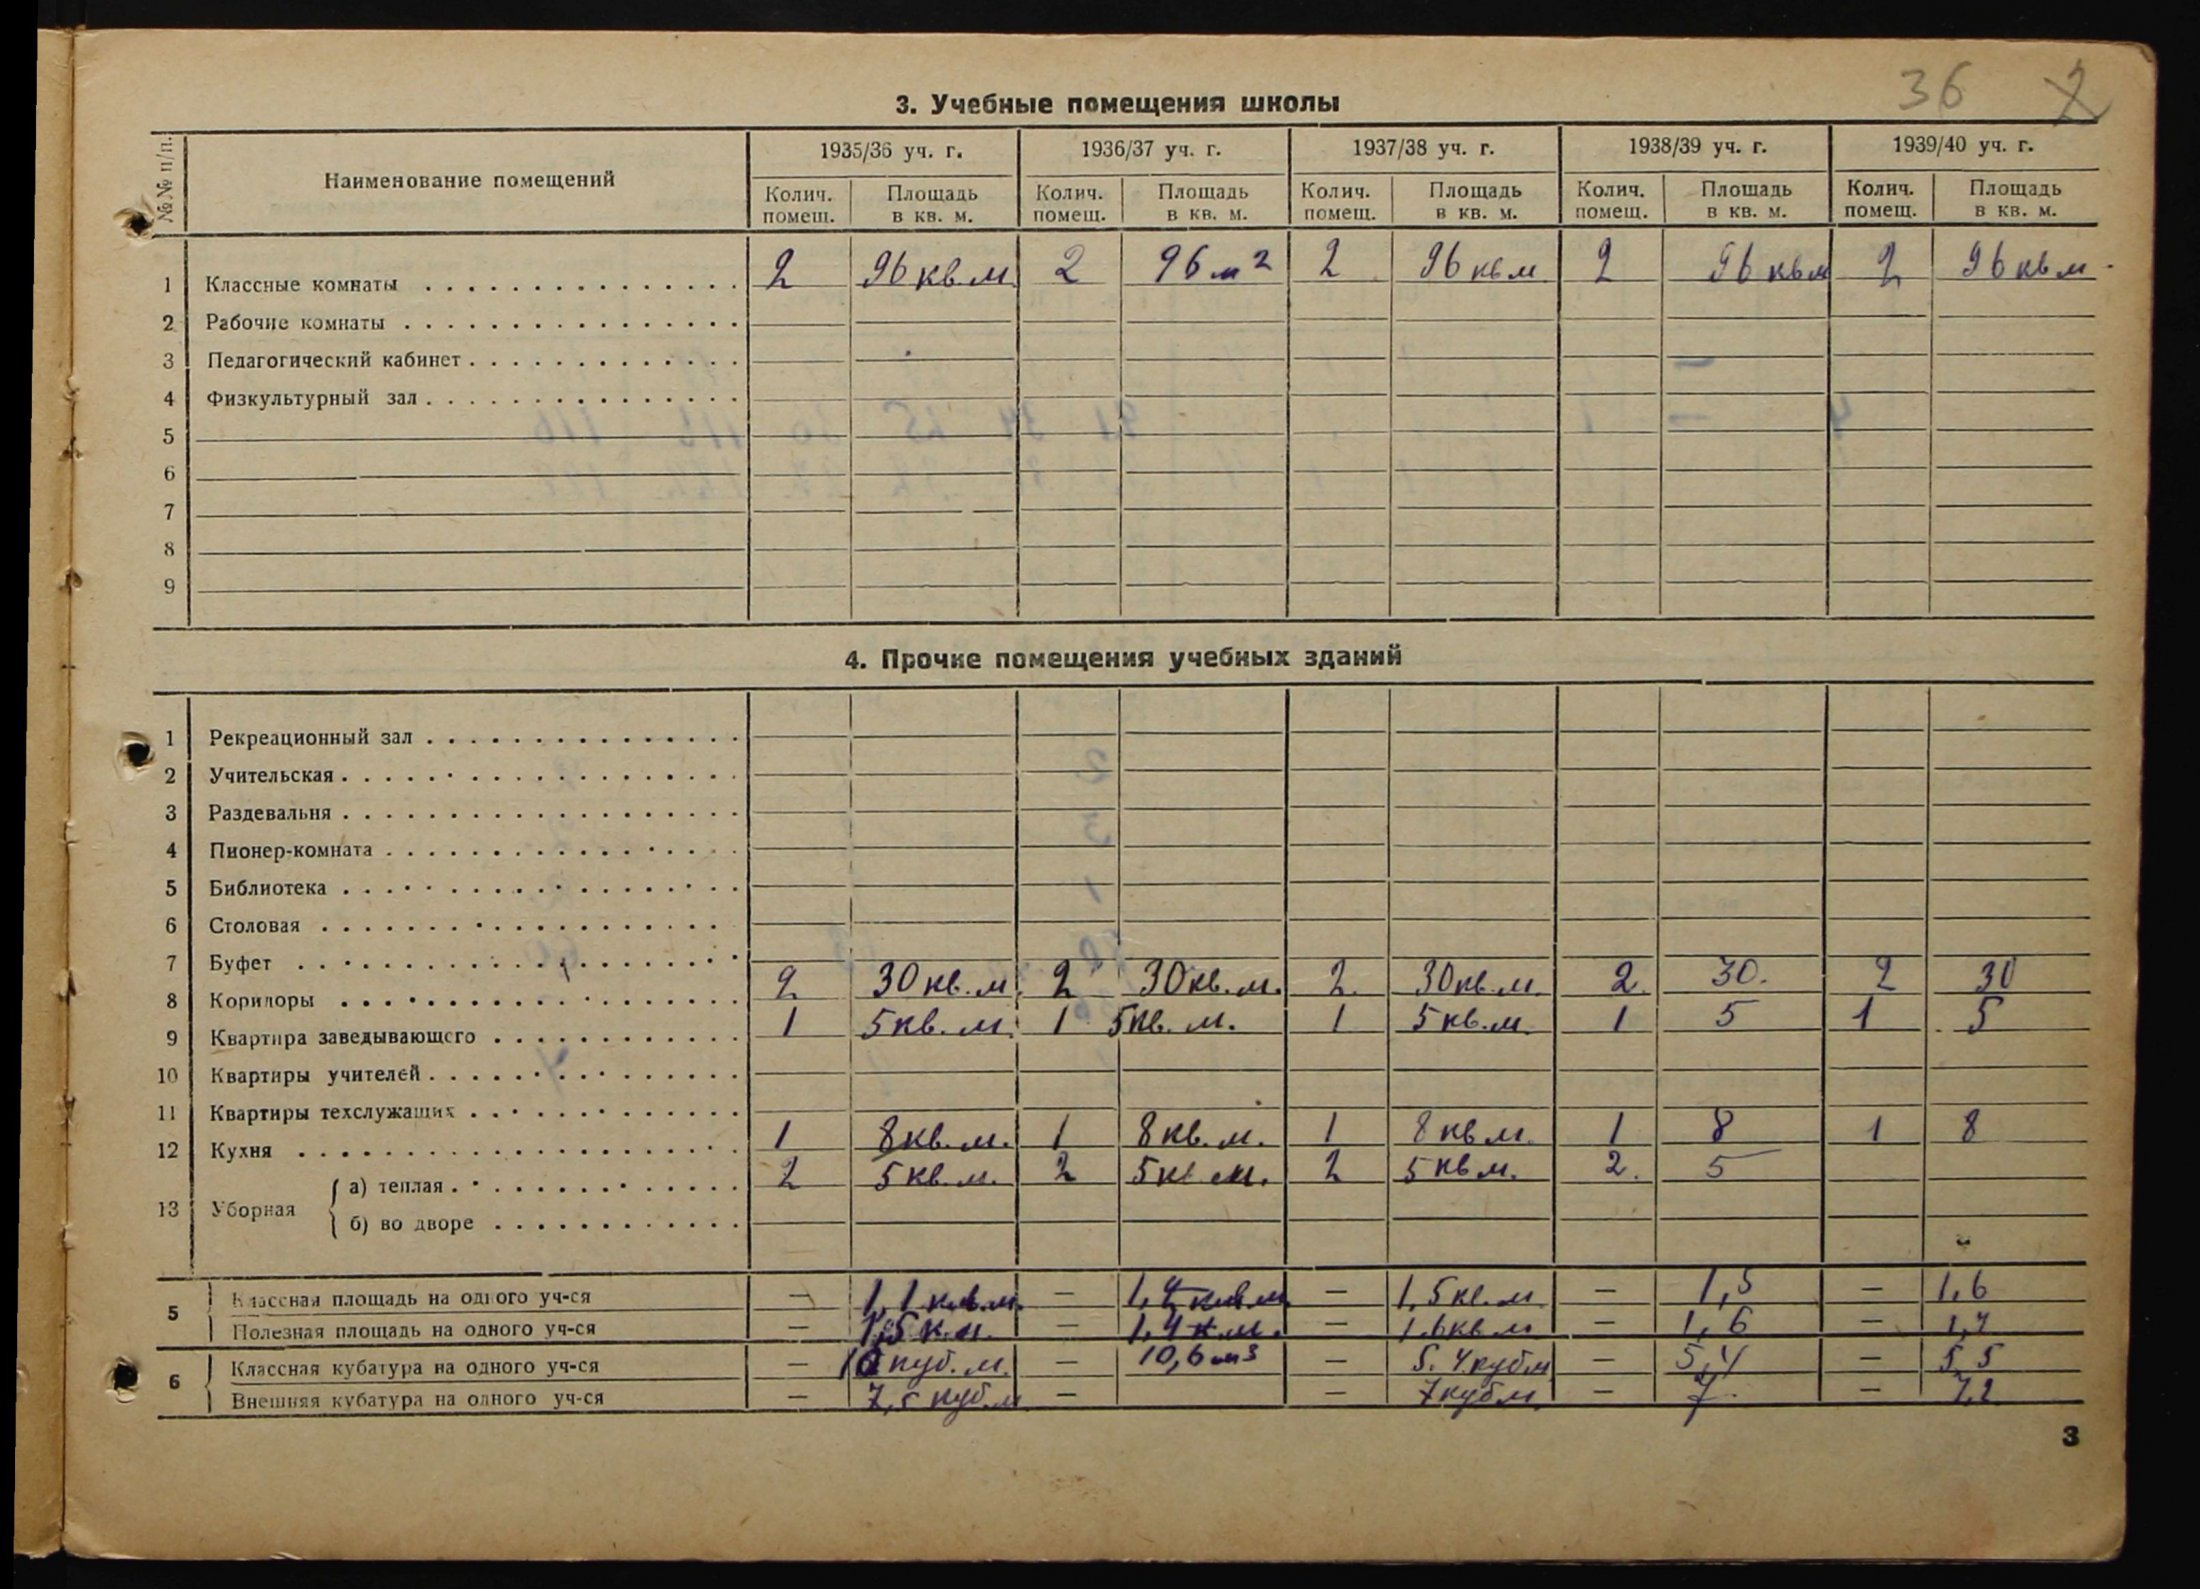 36 2
3. Учебные помещения школы
№№ п/п. Наименование помещений 1935/36 уч. г. 1936/37 уч. г. 1937/38 уч. г. 1938/39 уч. г. 1939/40 уч. г.
Колич. помещ. Площадь в кв. м. Колич. помещ. Площадь в кв. м. Колич. помещ. Площадь в кв. м. Колич. помещ. Площадь в кв. м. Колич. помещ. Площадь в кв. м.
1 Классные комнаты 2 96 кв. м. 2 96 м² 2 96 кв м 2 96 кв м 2 96 кв м
2 Рабочие комнаты
3 Педагогический кабинет
4 Физкультурный зал
5
6
7
8
9
4. Прочие помещения учебных зданий
1 Рекреационный зал
2 Учительская
3 Раздевальня
4 Пионер-комната
5 Библиотека
6 Столовая
7 Буфет
8 Коридоры 2 30 кв. м. 2 30 кв. м. 2. 30 кв. м. 2. 30. 2 30
9 Квартира заведывающего 1 5 кв. м. 1 5 кв. м. 1 5 кв. м. 1 5 1 5
10 Квартиры учителей
11 Квартиры техслужащих
12 Кухня 1 8 кв. м. 1 8 кв. м. 1 8 кв м. 1 8 1 8
13 Уборная а) теплая 2 5 кв. м. 2 5 кв. м. 2 5 кв м. 2. 5
б) во дворе
5 Классная площадь на одного уч-ся — 1,1 кв. м. — — 1,5 кв. м. — 1,5 — 1,6
Полезная площадь на одного уч-ся — 1,5 к. м. — 1,4 к. м. — 1.6 кв м — 1,6 —
6 Классная кубатура на одного уч-ся — куб. м. — 10,6 м³ — 5.4 куб м — 5,4 — 5 5
Внешняя кубатура на одного уч-ся — 7,5 куб. м — — 7 куб м. — 7. — 7,2
3